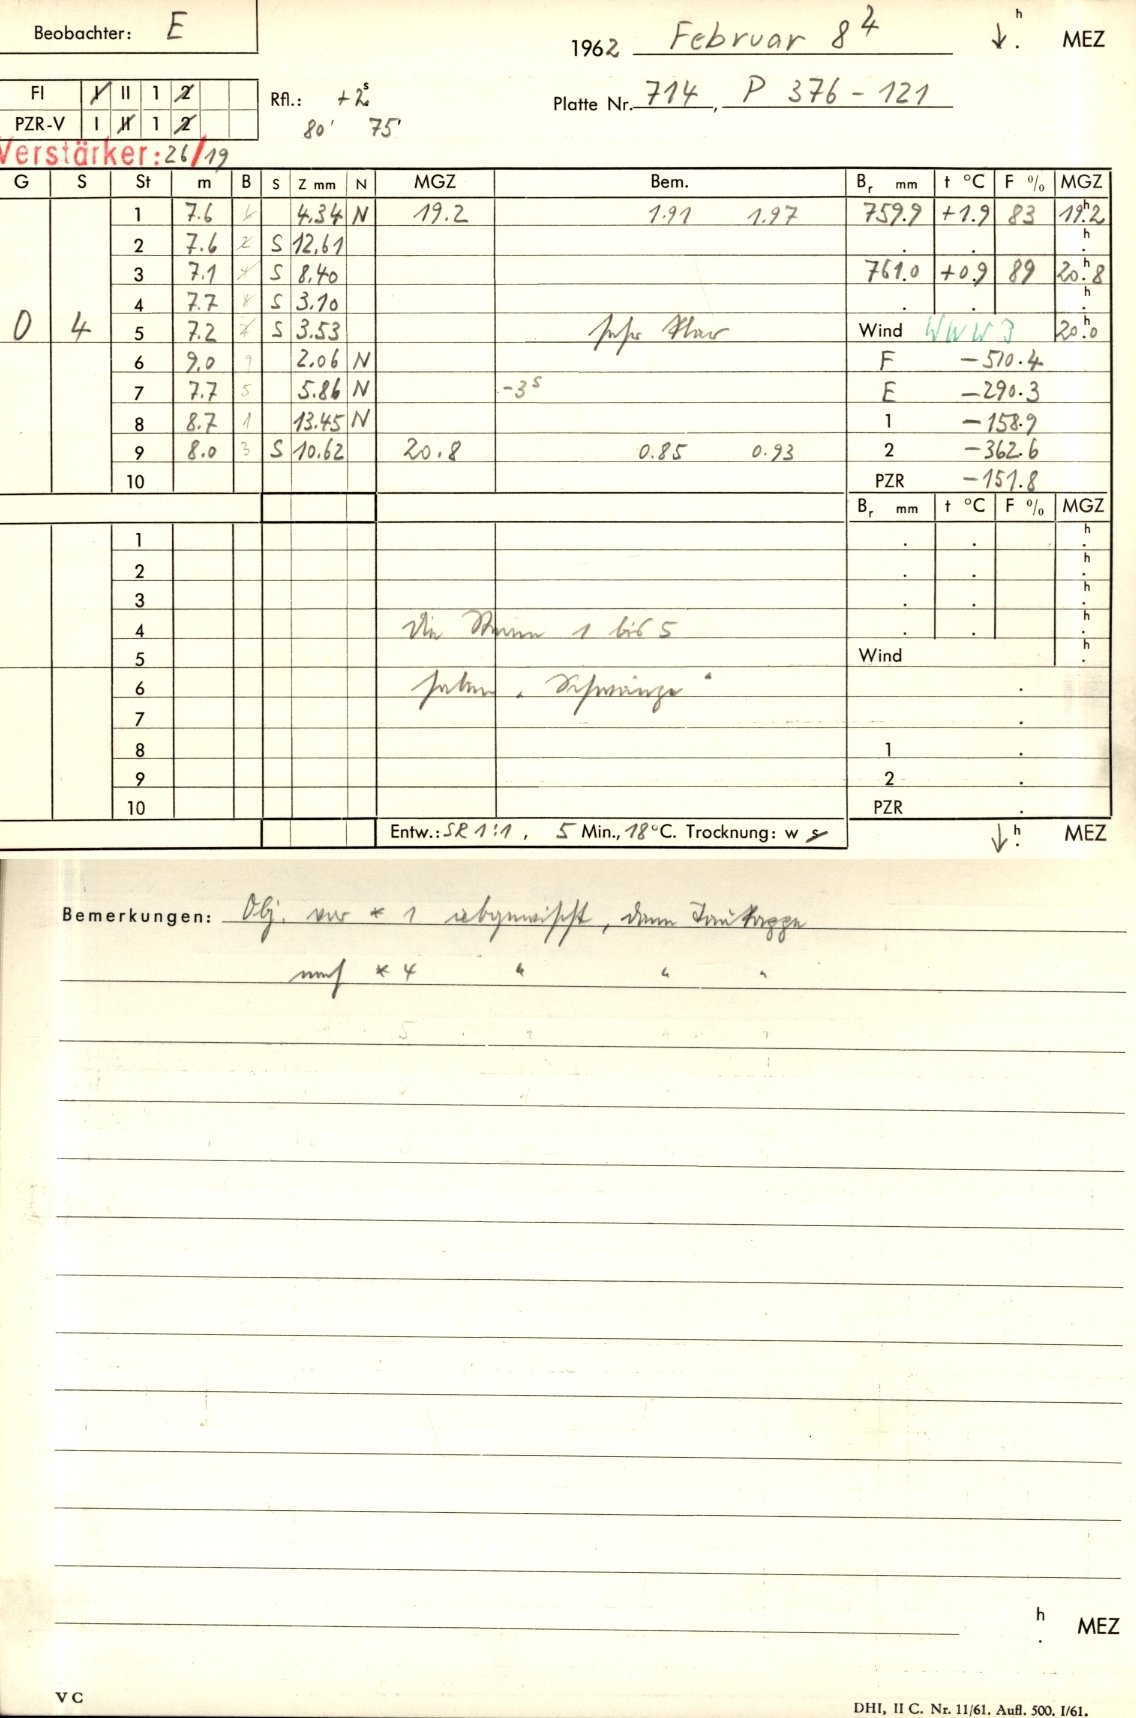 Beobachter: E
1962 Februar 8 ♃ ↓ h . MEZ
FI I II 1 2
PZR-V I II 1 2
Rfl.: +2s
80' 75'
Platte Nr. 714, P 376 - 121
Verstärker: 26/19
G S St m B S Z mm N MGZ Bem. Br mm t °C F % MGZ
1 7.6 6 4.34 N 19.2 1.91 1.97 759.9 +1.9 83 19h.2
2 7.6 2 S 12.61 . . h .
3 7.1 4 S 8.40 761.0 +0.9 89 20.h8
4 7.7 8 S 3.10 . . h .
0 4 5 7.2 7 S 3.53 sehr klar Wind WNW 3 20h.0
6 9.0 9 2.06 N F -510.4
7 7.7 5 5.86 N -3s E -290.3
8 8.7 1 13.45 N 1 -158.9
9 8.0 3 S 10.62 20.8 0.85 0.93 2 -362.6
10 PZR -151.8
Br mm t °C F % MGZ
1 . . h .
2 . . h .
3 . . h .
4 Die Sterne 1 bis 5 . . h .
5 Wind h .
6 haben „Schwänze“ .
7 .
8 1 .
9 2 .
10 PZR .
Entw.: SR 1:1, 5 Min., 18 °C. Trocknung: w s
↓ h . MEZ
Bemerkungen: Obj. vor * 1 abgewischt, dann Taukappe
nach * 4 " " "
5 " " "
h . MEZ
V C
DHI, II C. Nr. 11/61. Aufl. 500. I/61.